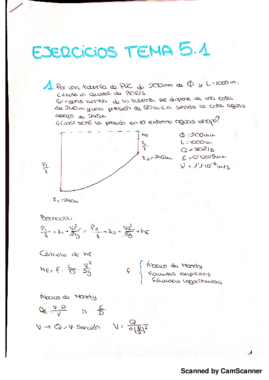 EJERCICIOS TEMA 5.1
1 Por una tubería de PVC de 200mm de Φ y L=1000m.
circula un caudal de 30 l/s
aguas arriba de la tubería se dispone de una cota
de 240m y una presión de 50 m.c.a siendo la cota aguas
abajo de 245m.
¿Cuál será la presión en el extremo aguas abajo?
Φ = 200mm
L = 1000m
Q = 30 l/s
hf
P2/γ
Z2=245m
P1/γ
Z1=240m
Bernouilli:
P1/γ + Z1 + V1²/2g = P2/γ + Z2 + V2²/2g + hf
Cálculo de hf
hf = f · L/D · V²/2g
f
Ábaco de Moody
Fórmulas empíricas
Fórmulas logarítmicas
Ábaco de Moody
V → Q = V · Sección
Scanned by CamScanner